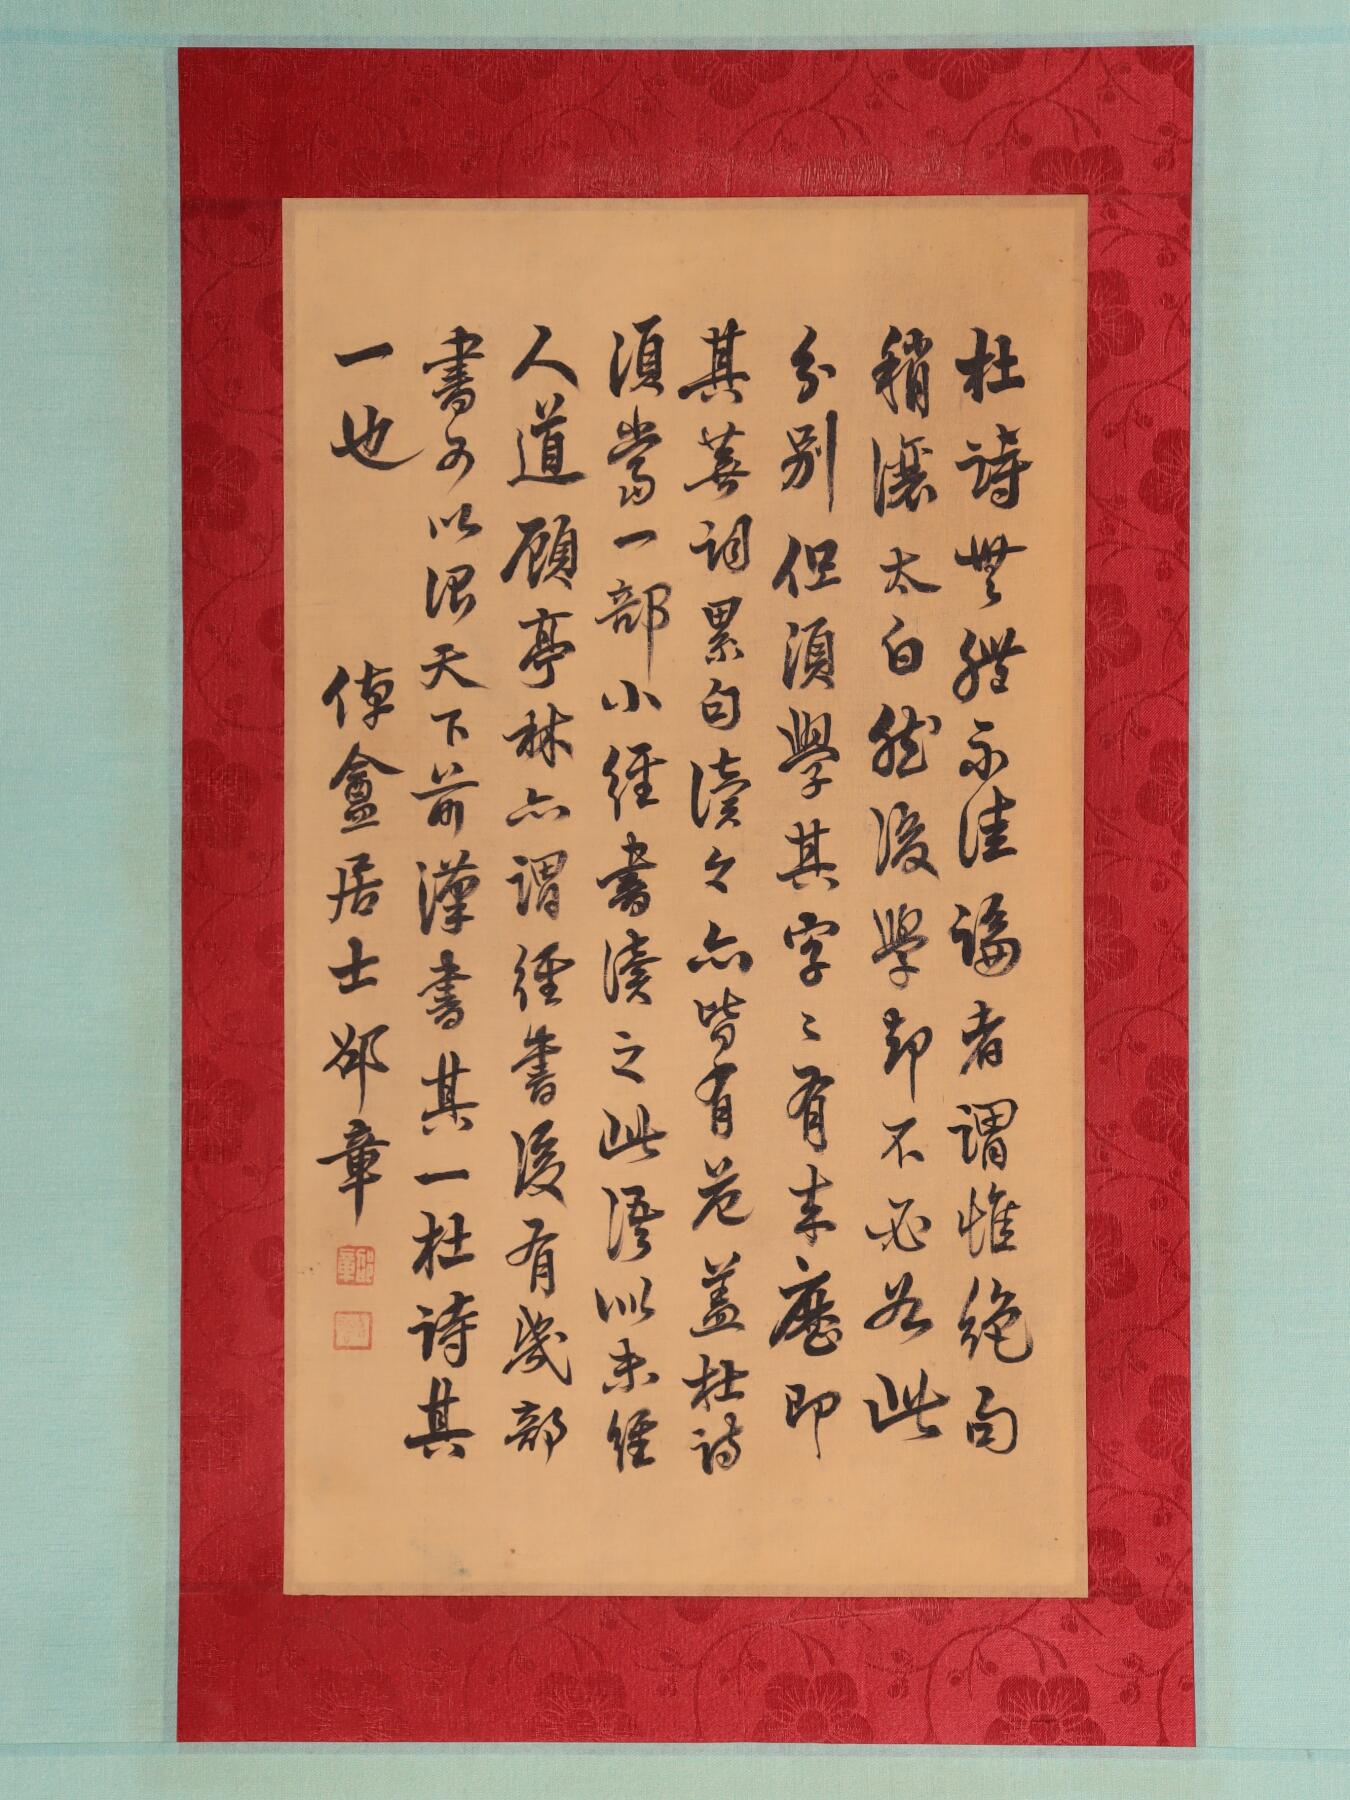 杜詩無體不佳論者謂惟絕句
稍讓太白然後學却不必如此
分別但須學其字〻有來歷即
其蕪詞累句讀之亦皆有范蓋杜詩
須當一部小經書讀之此語似未經
人道顧亭林亦謂經書後有幾部
書可以治天下前漢書其一杜詩其
一也
倬盦居士邵章
邵章